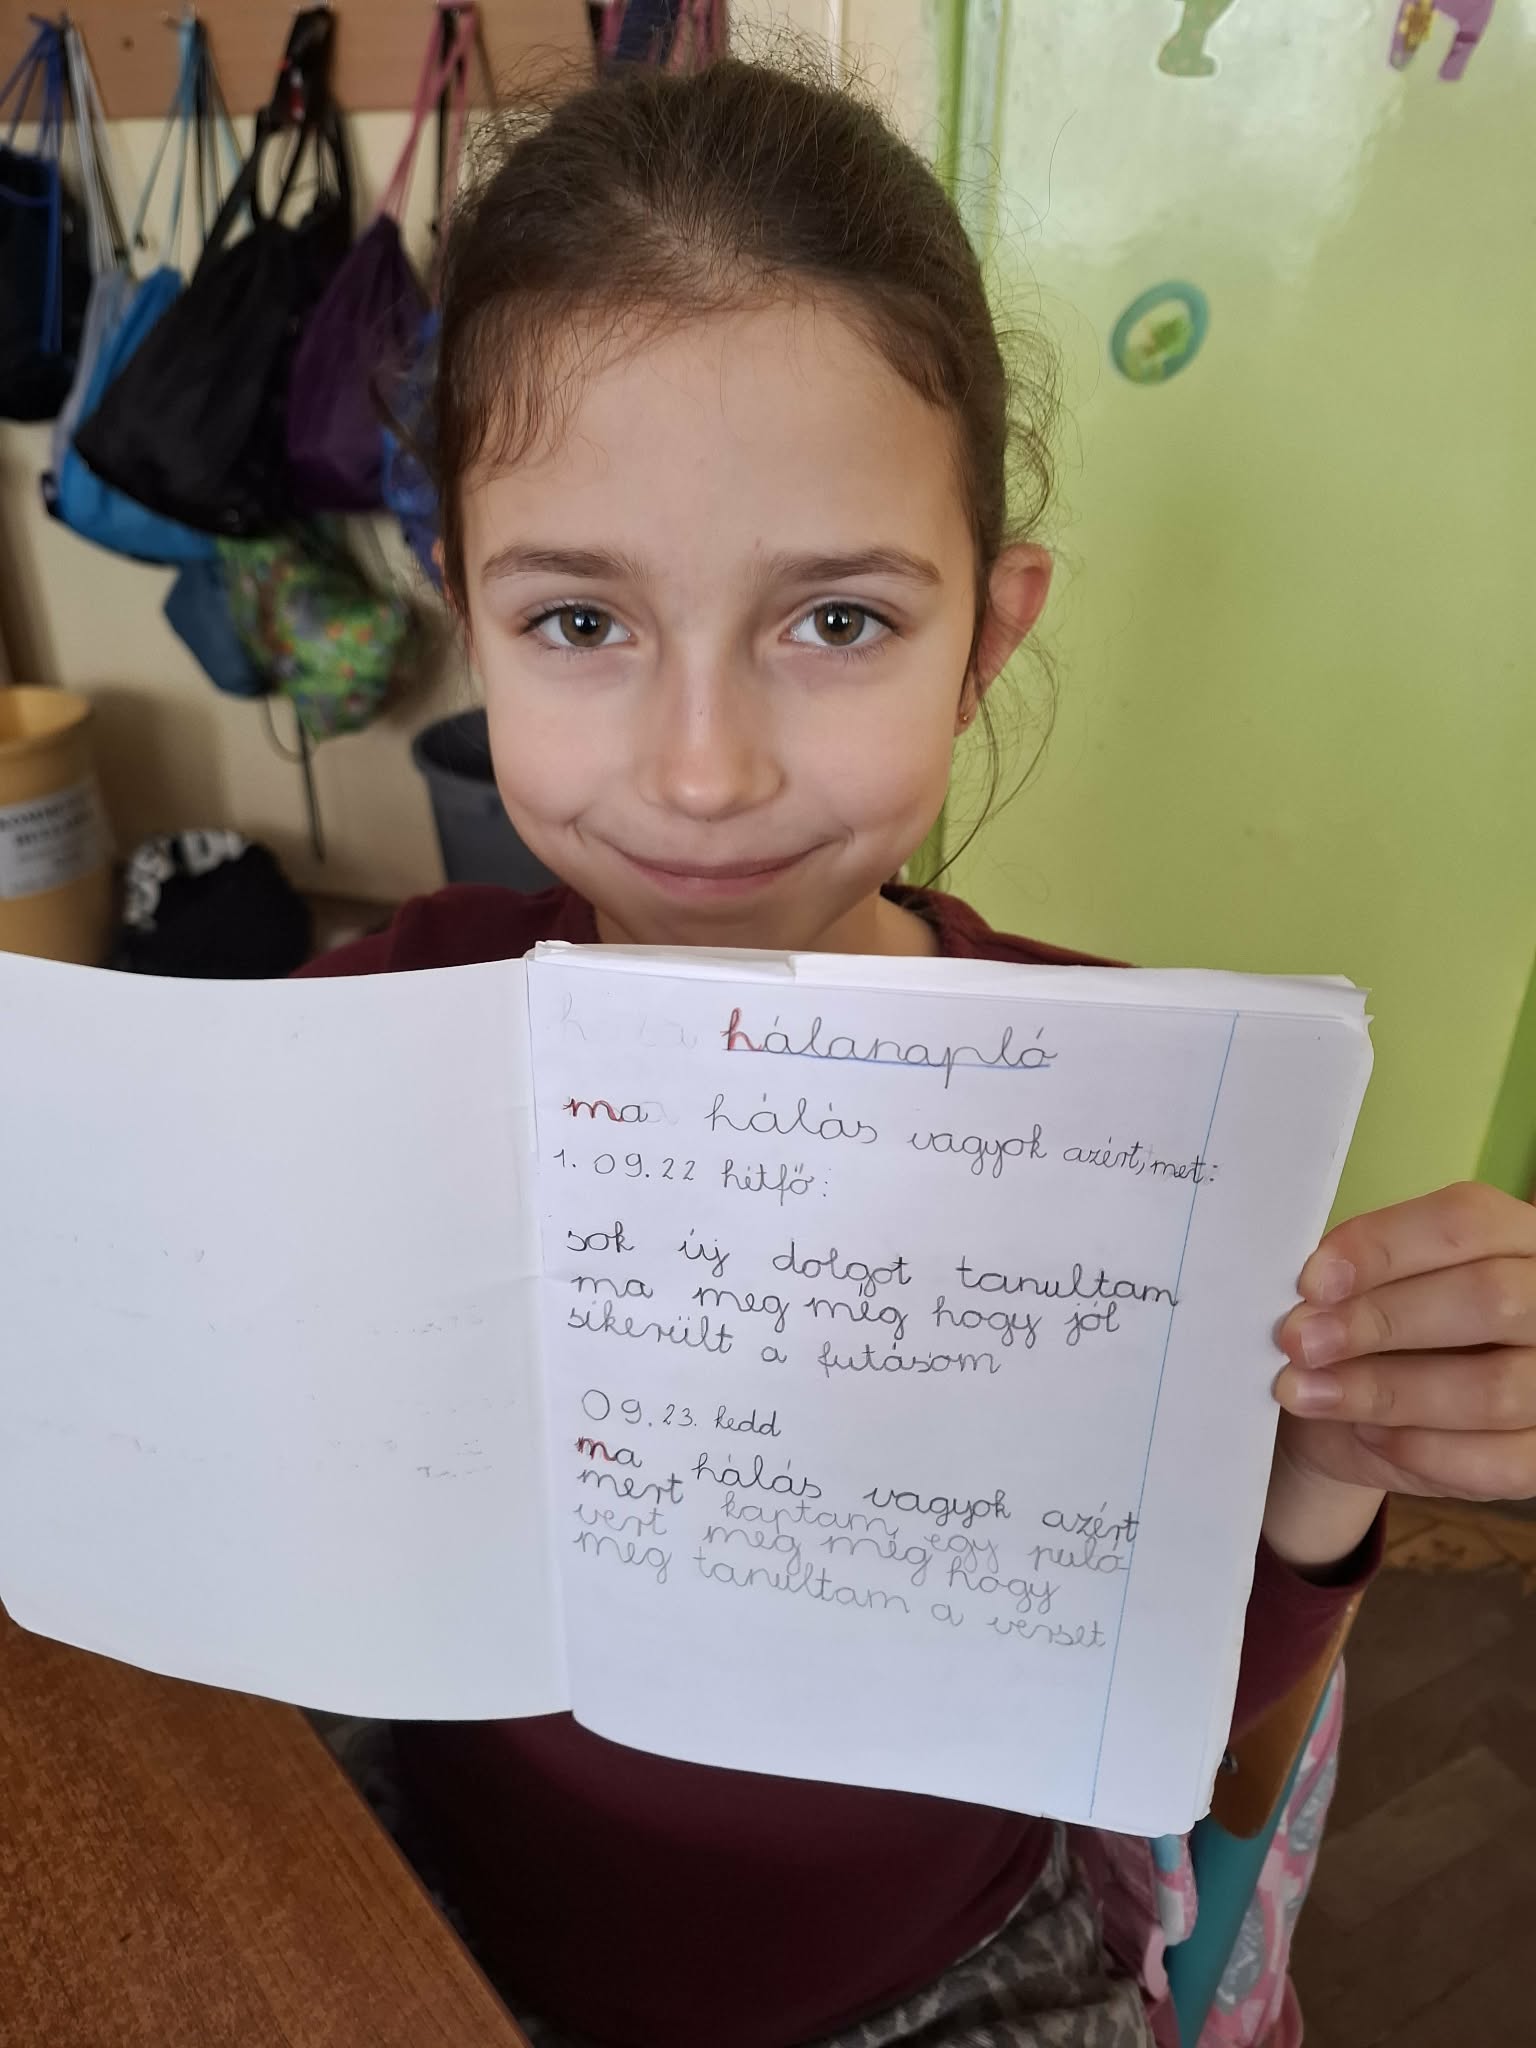 hálanapló
ma hálás vagyok azért, mert:
1. 09.22 hétfő:
sok új dolgot tanultam
ma meg még hogy jól
sikerült a futásom
09.23. kedd
ma hálás vagyok azért
mert kaptam egy puló
vert meg még hogy
meg tanultam a verset